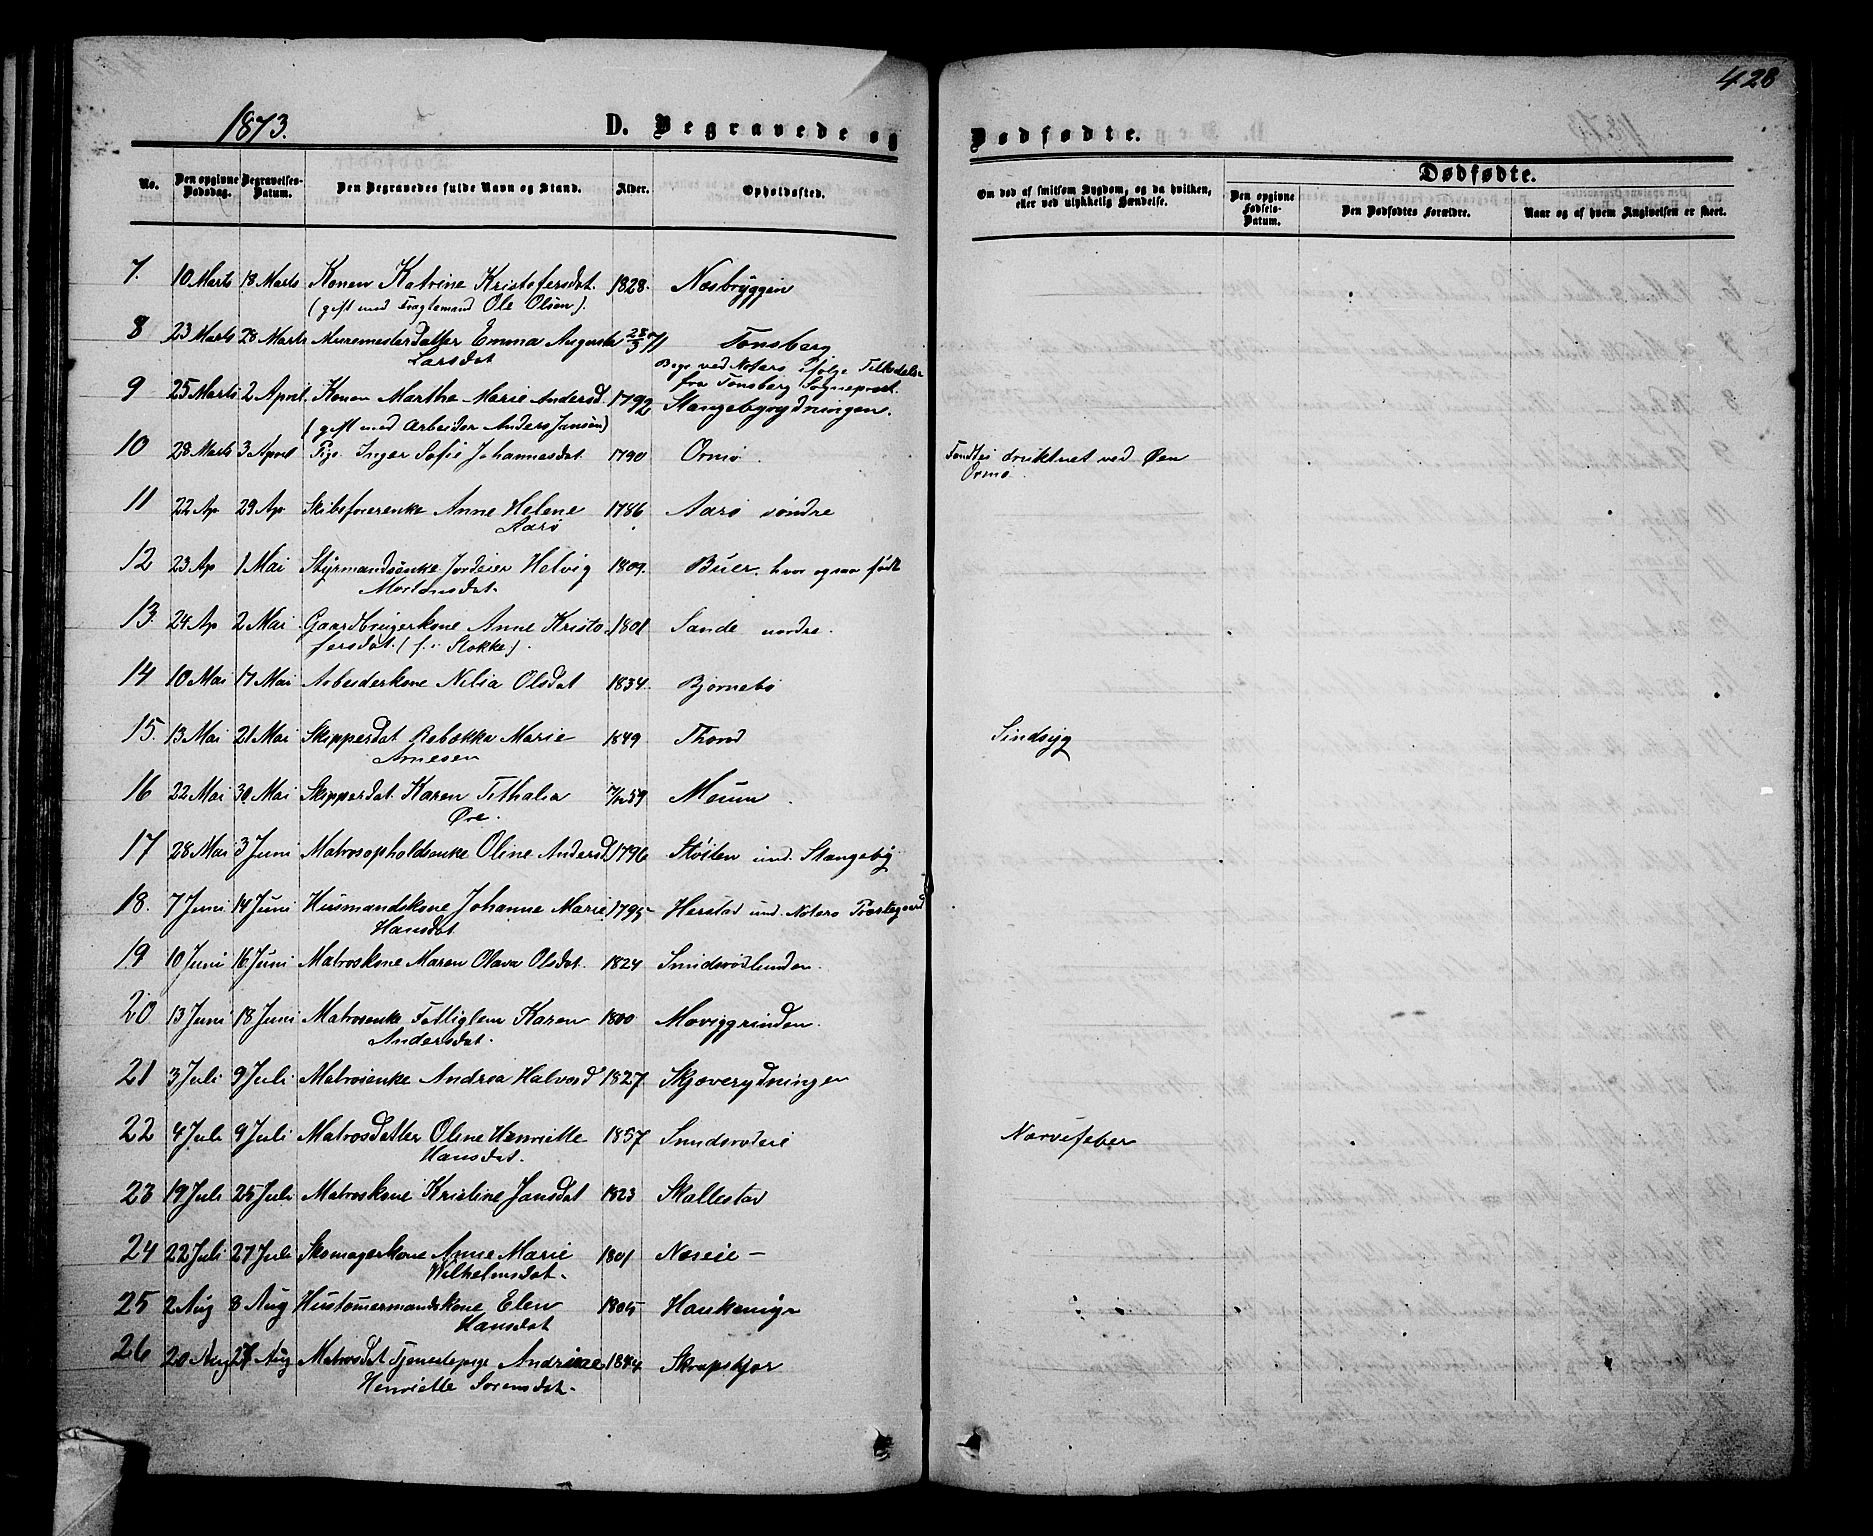 428
1873.
D. Begravede og Dødfødte.
No. Den opgivne Dødsdag. Begravelses-Datum. Den Begravedes fulde Navn og Stand. Alder. Opholdssted. Om død af smitsom Sygdom, og da hvilken, eller ved ulykkelig Hændelse. Dødfødte.
Den opgivne Fødsels-Datum. Den Dødfødtes Forældre. Naar og af hvem Angivelsen er skeet.
7. 10 Marts 18 Marts Konen Katrine Kristofersdat. 1828. Næsbryggen
(gift med Fragtemand Ole Olsen).
8 23 Marts 28 Marts Muremesterdatter Emma Augusta 28/3 71 Tønsberg
Larsdat Begr. ved Nøterø ifølge Tilladelse
fra Tønsberg Sogneprest.
9 25 Marts 2 April Konen Marthe Marie Andersd. 1792 Stangebyrydningen.
(gift med Arbeider Anders Jansen)
10 28 Marts 3 April Pige Inger Sofie Johannesdat. 1790 Ormø Fandtes druknet ved Øen
Ormø.
11 22 Ap 29 Ap Skibsførerenke Anne Helene 1786 Aarø søndre
Aarø
12 23 Ap 1 Mai Styrmandsenke Jordeier Helvig 1809. Buer, hvor ogsaa født
Mortensdat.
13. 24 Ap 2 Mai Gaardbrugerkone Anne Kristo- 1801 Sande nordre.
fersdat. (f. i Stokke).
14 10 Mai 17 Mai Arbeiderkone Nilia Olsdat 1834. Bjørnebø
15. 13 Mai 21 Mai Skipperdat Rebækka Marie 1849 Thorød Sindsyg
Arnesen
16 22 Mai 30 Mai Skipperdat. Karen Tithalia 59 Meum
Øre.
17 28 Mai 3 Juni Matrosopholdsenke Oline Andersd 1796 Støiten und. Stangeby
18. 7 Juni 14 Juni Husmandskone Johanne Marie 1795 Herstad und. Nøterø Præstegaard
Hansdat
19 10 Juni 16 Juni Matroskone Maren Olava Olsdat. 1824 Smidsrødlunden.
20 13 Juni 18 Juni Matrosenke Fattiglem Karen 1800 Moviggrinden.
Andersdat.
21 3 Juli 9 Juli Matrosenke Andrea Halvorsd 1827 Skjæverydningen
22 4 Juli 9 Juli Matrosdatter Oline Henriette 1857 Smidsrødeie Nervefeber
Hansdat.
23 19 Juli 25 Juli Matroskone Kristine Jansdat 1823 Skallestad
24 22 Juli 27 Juli Skomagerkone Anne Marie 1801 Næseie –
Wilhelmsdat.
25 2 Aug 8 Aug Hustømermandskone Elen 1805 Haukemyr
Hansdat
26 20 Aug 27 Aug Matrosdat Tjenestepige Andrine 1844 Skrapskjær
Henriette Sørensdat.